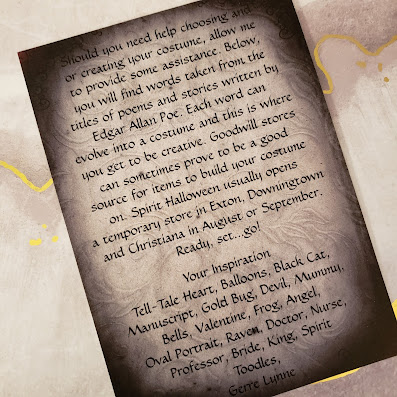 Should you need help choosing and
or creating your costume, allow me
to provide some assistance. Below,
you will find words taken from the
titles of poems and stories written by
Edgar Allan Poe. Each word can
evolve into a costume and this is where
you get to be creative. Goodwill stores
can sometimes prove to be a good
source for items to build your costume
on. Spirit Halloween usually opens
a temporary store in Exton, Downingtown
and Christiana in August or September.
Ready, set...go!
Your Inspiration
Tell-Tale Heart, Balloons, Black Cat,
Manuscript, Gold Bug, Devil, Mummy,
Bells, Valentine, Frog, Angel,
Oval Portrait, Raven, Doctor, Nurse,
Professor, Bride, King, Spirit
Toodles,
Gerre Lynne